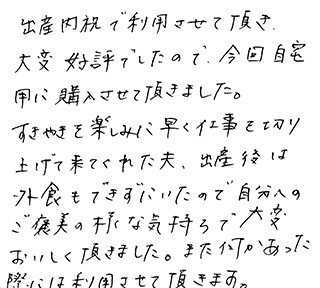 出産内祝で利用させて頂き、
大変好評でしたので、今回自宅
用に購入させて頂きました。
すきやきを楽しみに早く仕事を切り
上げて来てくれた夫、出産後は
外食もできずにいたので自分への
ご褒美の様な気持ちで大変
おいしく頂きました。また何かあった
際には利用させて頂きます。